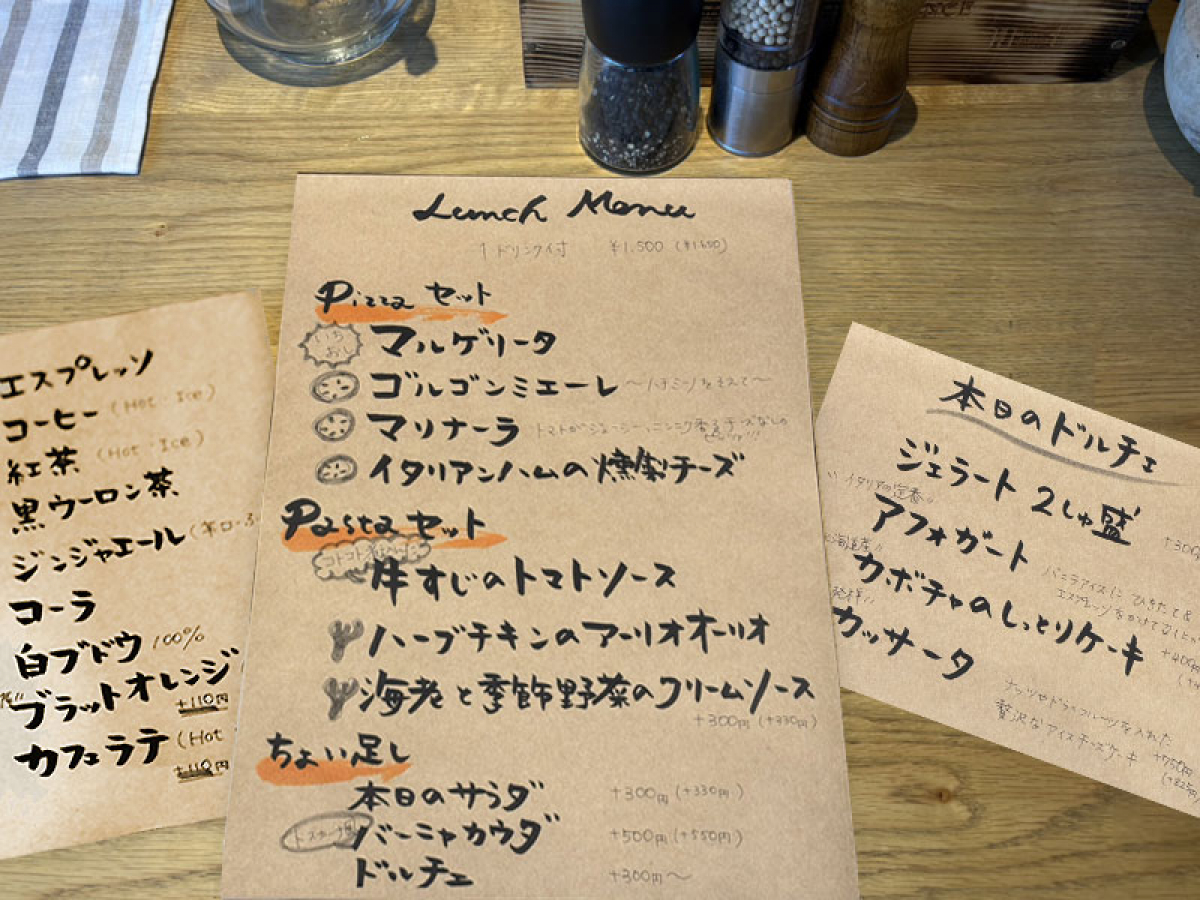 Lunch Menu
1ドリンク付 ¥1,500 (¥1650)
Pizza セット
いちおし マルゲリータ
ゴルゴンミエーレ 〜ハチミツをそえて〜
マリナーラ
イタリアンハムの燻製チーズ
Pasta セット
コトコト
牛すじのトマトソース
ハーブチキンのアーリオオーリオ
海老と季節野菜のクリームソース
+300円(+330円)
ちょい足し
本日のサラダ +300円(+330円)
バーニャカウダ +500円(+550円)
ドルチェ +300円〜
エスプレッソ
コーヒー (Hot・Ice)
紅茶 (Hot・Ice)
黒ウーロン茶
ジンジャエール
コーラ
白ブドウ 100%
ブラッドオレンジ
+110円
カフェラテ (Hot
+110円
本日のドルチェ
ジェラート 2しゅ盛
+300
"イタリアの定番"
アフォガート
バニラアイスに
エスプレッソをかけて
北海道産"
カボチャのしっとりケーキ
+400円
カッサータ
ナッツやドライフルーツを入れた
贅沢なアイスチーズケーキ +750円
(+825円)